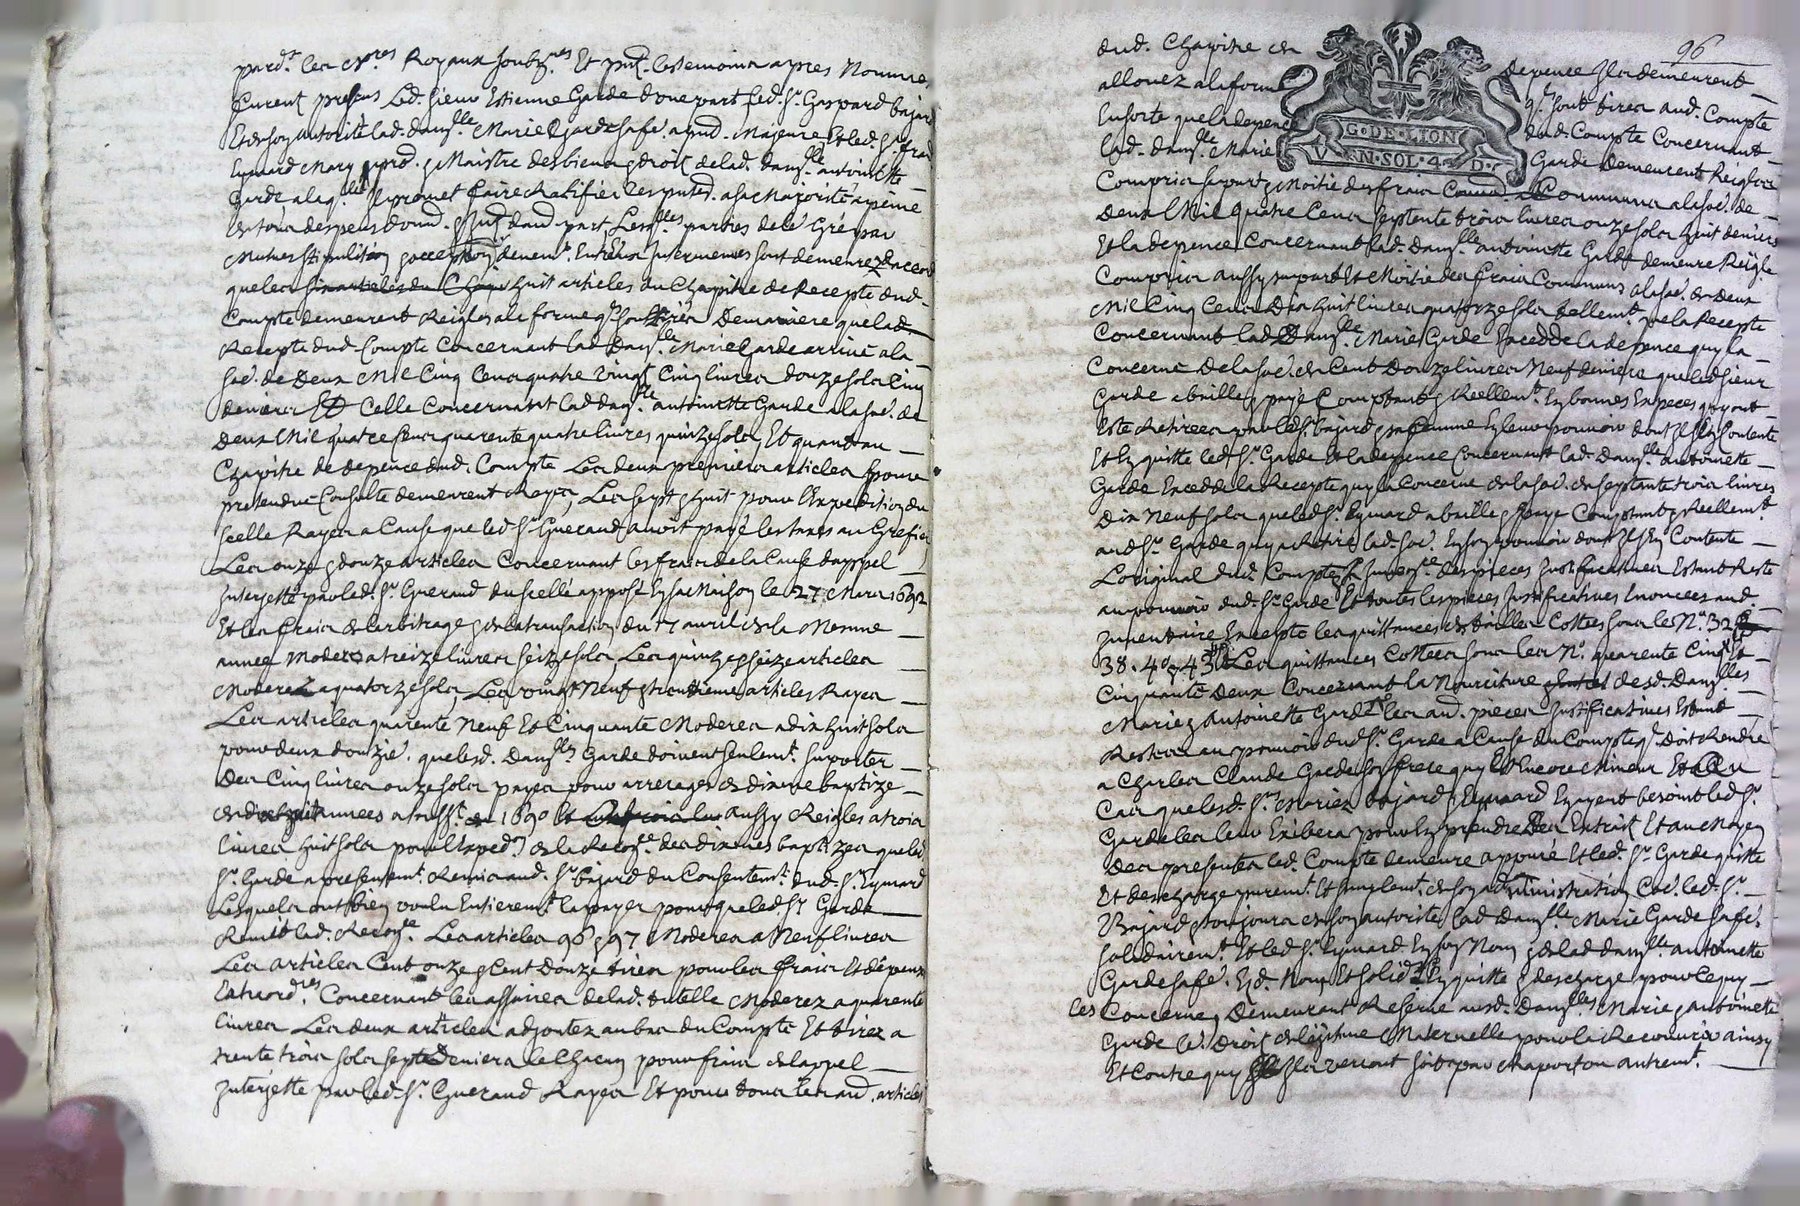 pard.t les n.res Royaux soubz.nes Et p.nt les temoins apres Nommes
furent presens Led. sieur Estienne Garde d'une part led. S.r Gaspard bajard
Et de son autorité lad. dam.lle Marie Garde sa fe. a pnd. Majeure Et led. S.r
Eymard Mary & Maistre des biens & droits de lad. dam.lle antoinette
Garde a laq.lle Il promet faire Ratifier les pntes a sa Majorité a peine
de tous despens d'autre part, Lesq.lles parties de leur Gré par
Mutuelle stipulation & acceptation devem.t Entrevenus sont demeurez d'accord
que les six articles du Chap huit articles du Chapitre de Recepte dud.
Compte demeurent Reigles a la forme q.ls sont tires De maniere que lad.
Recepte dud. Compte Concernant lad. Dam.lle Marie Garde arrive a la
so.e de Deux Mil Cinq Cens quatre vingt Cinq livres douze sols Cinq
deniers Et Celle Concernant lad. dam.lle antoinette Garde a la so.e de
Deux Mil quatre Cens quarente quatre livres quinze sols, Et quant au
Chapitre de depence dud. Compte Les deux premiers articles pour
pretendue Consulte demeurent Rayes, Les sept & huit pour l'Expedition du
scellé Rayes a Cause que led. S.r Gueraud avoit payé les taxes au Grefier
Les onze & douze articles Concernant les frais de la Cause d'appel
Interjetté par led. S.r Gueraud du scellé apposé En sa Maison le 27 Mars 1692
Et les frais de l'arbitrage & de la transaction du 17 avril de la Mesme
année Moderes a treize livres seize sols Les quinze & seize articles
Moderez a quatorze sols, Les vingt Neuf & trentieme articles Rayes
Les articles quarente Neuf Et Cinquante Moderes a dix huit sols
pour deux douzie. que lesd. Dam.lles Garde doivent seulem.t suporter
Des Cinq livres onze sols payes pour arrerages de disme baptize
de dix huit années 1690 aussy Reigles a trois
livres huit sols pour l'Exped.on de la Recog.ce des dismes baptizes que led.
S.r Garde a presentem.t Remis aud. S.r bajard du Consentem.t dud. S.r Eymard
Lesquels ont bien voulu Entierem.t la payer pour que led. S.r Garde
Remit lad. Recog.ce Les articles 96 & 97 Moderes a Neuf livres
Les articles Cent onze & Cent Douze tires pour les frais Et depens
Extraord.res Concernant les affaires de lad. tutelle Moderez a quarente
livres Les deux articles adjoutez au bas du Compte Et tirez a
trente trois sols sept Deniers le Chacun pour frais de l'appel
Interjetté par led. S.r Gueraud Rayes Et pour tous les aud. articles
96
dud. Chapitre de Depence Ils demeurent
allouez a la forme q.ls sont tires aud. Compte
En sorte que la depence dud. Compte Concernant
lad. dam.lle Marie Garde Demeurent Reiglées
Compris sa part & Moitié des frais Communs a la so.e de
Deux Mil quatre Cens Septente trois livres onze sols huit deniers
Et la depence Concernant lad. Dam.lle antoinette Garde demeure Reiglé
Compris aussy sa part Et Moitié des frais Communs a la so.e de Deux
Mil Cinq Cens Dix huit livres quatorze sols tellem.t que la Recepte
Concernant lad. Dam.lle Marie Garde Excedde la depence quy la
Concerne De la so.e de Cent Douze livres Neuf deniers que led. sieur
Garde a baillé & payé Comptant & Reellem.t En bonnes Especes quy ont
Este Retirees par led. S.r bajard & sa femme En leur pouvoir dont Ils sont Contents
Et En quitte led. S.r Garde Et la depence Concernant lad. Dam.lle antoinette
Garde Excedde la Recepte quy la Concerne de la so.e de septante trois livres
Dix Neuf sols que led. S.r Eymard a baillé & payé Comptant & Reellem.t
aud. S.r Garde quy a Retiré lad. so.e En son pouvoir dont Il Est Contente
L'original dud. Compte des pieces Justificatives Estant Resté
au pouvoir dud. S.r Garde Et toutes les pieces Justificatives Enoncees aud.
Inventaire Excepté les quittances de tailles Cottees sous les N.o 32
38. 40 & 43 Les quittances Cottees sous les N.o quarente Cinq Et
Cinquante Deux Concernant la Nourriture desd. Dam.lles
Marie & Antoinette Garde les aud. pieces Justificatives Estant
Restees au pouvoir dud. S.r Garde a Cause du Compte q.l Doit Rendre
a Charles Claude Garde son frere quy Est Encore Mineur Et au
Cas que lesd. S.rs Mariez bajard & Eymard En ayent besoin led. S.r
Garde les leur Exibera pour En prendre Des Extraits Et au Moyen
Des presentes led. Compte demeure appuré Et led. S.r Garde quitte
Et descharge purem.t Et simplem.t de son administration Co.e led. S.r
Bajard & toujours de son autorité lad. Dam.lle Marie Garde sa fe.
solidairem.t Et led. S.r Eymard En son Nom & de lad. dam.lle antoinette
Garde sa fe. En quitte & descharge pour ce quy
les Concerne, Demeurant Reservé ausd. Dam.lles Marie & antoinette
Garde le. Droit de legitime Maternelle pour la Recouvrir ainsy
Et Contre quy Ils verront soit par raport ou autrem.t
G. DE. LION
V. EN. SOL. 4 D.